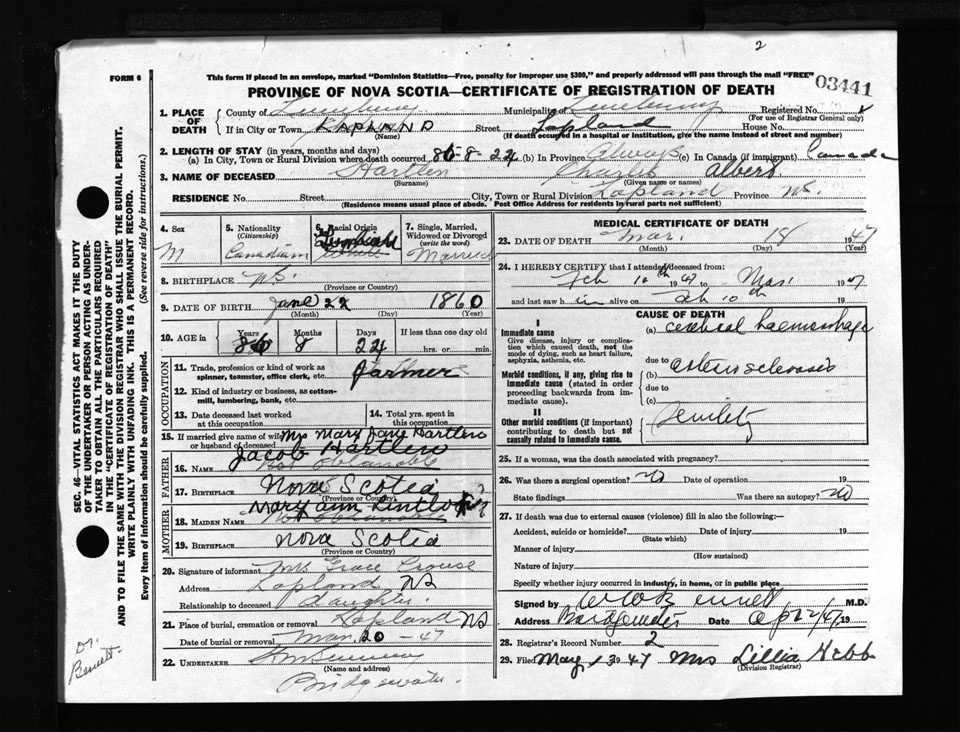 2
FORM 6
This form if placed in an envelope, marked "Dominion Statistics—Free, penalty for improper use $300," and properly addressed will pass through the mail "FREE"
03441
PROVINCE OF NOVA SCOTIA—CERTIFICATE OF REGISTRATION OF DEATH
1. PLACE OF DEATH
County of Lunenburg Municipality of Lunenburg Registered No.
(For use of Registrar General only)
If in City or Town KAPLAND Street Lapland House No.
(Name) (If death occurred in a hospital or institution, give the name instead of street and number)
2. LENGTH OF STAY (in years, months and days)
(a) In City, Town or Rural Division where death occurred 86-8-24 (b) In Province Always (c) In Canada (if immigrant) Canada
3. NAME OF DECEASED Hartlen Charles Albert
(Surname) (Given name or names)
RESIDENCE No. Street City, Town or Rural Division Lapland Province NS.
(Residence means usual place of abode. Post Office Address for residents in rural parts not sufficient)
4. Sex
M
5. Nationality
(Citizenship)
Canadian
6. Racial Origin
7. Single, Married, Widowed or Divorced
(write the word)
Married
8. BIRTHPLACE NS.
9. DATE OF BIRTH June 22 1860
(Month) (Day) (Year)
10. AGE in
Years Months Days If less than one day old
86 8 24 hrs. or min.
OCCUPATION
11. Trade, profession or kind of work as spinner, teamster, office clerk, etc. Farmer
12. Kind of industry or business, as cotton-mill, lumbering, bank, etc.
13. Date deceased last worked at this occupation
14. Total yrs. spent in this occupation
15. If married give name of wife or husband of deceased Mrs Mary Jane Hartlen
FATHER
Jacob Hartlen
16. NAME Not obtainable
17. BIRTHPLACE Nova Scotia ?
(Province or Country)
MOTHER
Mary ann
18. MAIDEN NAME Not obtainable
19. BIRTHPLACE Nova Scotia
(Province or Country)
20. Signature of informant Mrs. Grace Crouse
Address Lapland NS
Relationship to deceased daughter.
21. Place of burial, cremation or removal Lapland NS
Date of burial or removal Mar 20 - 47
22. UNDERTAKER
(Name and address)
Bridgewater.
MEDICAL CERTIFICATE OF DEATH
23. DATE OF DEATH Mar. 18 1947
(Month) (Day) (Year)
24. I HEREBY CERTIFY that I attended deceased from:
Feb 10th 1947 to Mar 1947
and last saw him alive on Feb 10th 19
CAUSE OF DEATH
I
Immediate cause
Give disease, injury or complication which caused death, not the mode of dying, such as heart failure, asphyxia, asthenia, etc.
(a) cerebral haemorrhage
due to
Morbid conditions, if any, giving rise to immediate cause (stated in order proceeding backwards from immediate cause).
(b) arteriosclerosis
due to
(c)
II
Other morbid conditions (if important) contributing to death but not causally related to immediate cause.
Senility
25. If a woman, was the death associated with pregnancy?
26. Was there a surgical operation? No Date of operation 19
State findings Was there an autopsy? No
27. If death was due to external causes (violence) fill in also the following:—
Accident, suicide or homicide? Date of injury 19
(State which)
Manner of injury
(How sustained)
Nature of injury
Specify whether injury occurred in industry, in home, or in public place
Signed by M.D.
Address Bridgewater Date Apr 2/47 19
28. Registrar's Record Number 2
29. Filed May 13 1947 Mrs Lillia Hebb
(Division Registrar)
SEC. 46—VITAL STATISTICS ACT MAKES IT THE DUTY OF THE UNDERTAKER OR PERSON ACTING AS UNDERTAKER TO OBTAIN ALL THE PARTICULARS REQUIRED IN THE "CERTIFICATE OF REGISTRATION OF DEATH" AND TO FILE THE SAME WITH THE DIVISION REGISTRAR WHO SHALL ISSUE THE BURIAL PERMIT.
WRITE PLAINLY WITH UNFADING INK. THIS IS A PERMANENT RECORD.
Every item of information should be carefully supplied. (See reverse side for instructions.)
Dr.
Bennett.